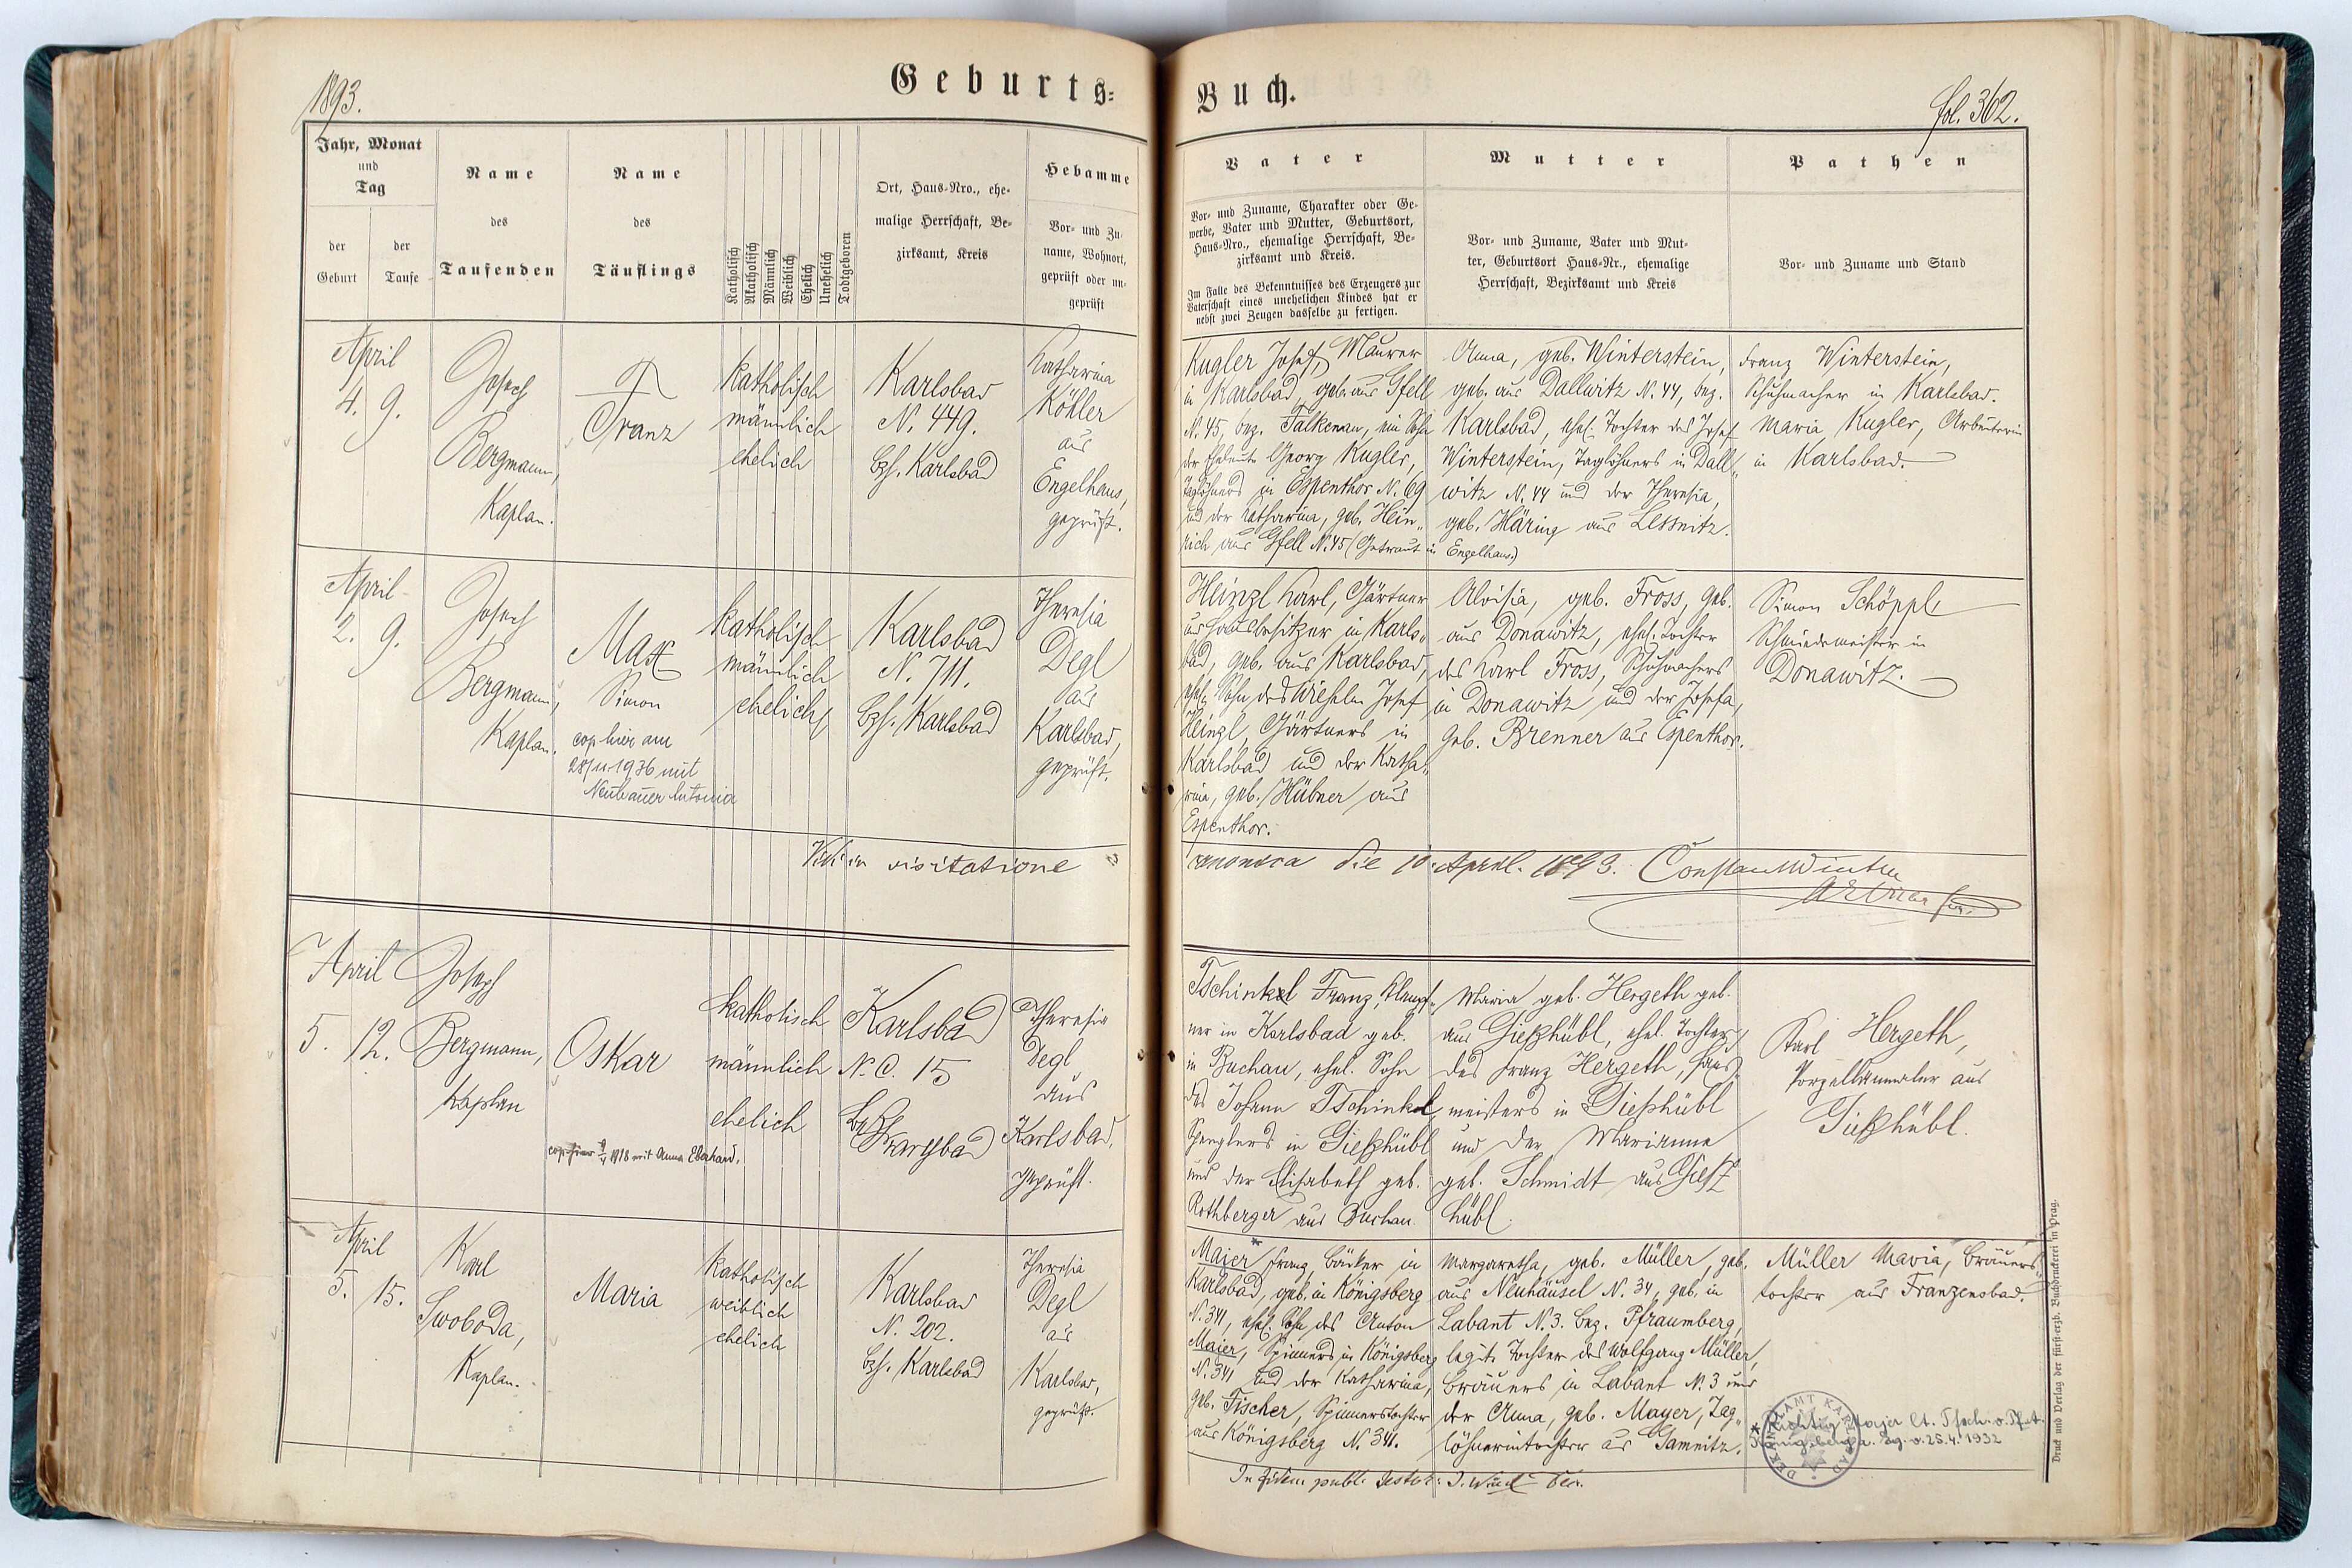 1893.
Geburts-
Jahr, Monat
und
Tag
der
Geburt
der
Taufe
Name
des
Taufenden
Name
des
Täuflings
Katholisch
Akatholisch
Männlich
Weiblich
Ehelich
Unehelich
Todtgeboren
Ort, Haus-Nro., ehe-
malige Herrschaft, Be-
zirksamt, Kreis
Hebamme
Vor- und Zu-
name, Wohnort,
geprüft oder un-
geprüft
April
4. 9.
Josef
Bergmann,
Kaplan.
Franz
katholisch
männlich
ehelich
Karlsbad
N. 449.
Bzh. Karlsbad
Katharina
Köhler
aus
Engelhaus,
geprüft.
April
2. 9.
Josef
Bergmann,
Kaplan.
Max
Simon
cop. hier am
1936 mit
Neubauer Antonia
katholisch
männlich
ehelich
Karlsbad
N. 711.
Bzh. Karlsbad
Theresia
Degl
aus
Karlsbad,
geprüft.
Vidi in visitatione
April
5. 12.
Joseph
Bergmann,
Kaplan
Oskar
cop. hier 1918 mit Anna Eberhard.
katholisch
männlich
ehelich
Karlsbad
N. C. 15
Karlsbad
Theresia
Degl
aus
Karlsbad,
geprüft.
April
5. 15.
Karl
Swoboda,
Kaplan.
Maria
katholisch
weiblich
ehelich
Karlsbad
N. 202.
Bzh. Karlsbad
Theresia
Degl
aus
Karlsbad,
geprüft.
Buch.
fol. 362.
Vater
Vor- und Zuname, Charakter oder Ge-
werbe, Vater und Mutter, Geburtsort,
Haus-Nro., ehemalige Herrschaft, Be-
zirksamt und Kreis.
Im Falle des Bekenntnisses des Erzeugers zur
Vaterschaft eines unehelichen Kindes hat er
nebst zwei Zeugen dasselbe zu fertigen.
Mutter
Vor- und Zuname, Vater und Mut-
ter, Geburtsort Haus-Nr., ehemalige
Herrschaft, Bezirksamt und Kreis
Pathen
Vor- und Zuname und Stand
Kugler Josef, Maurer
in Karlsbad, geb. aus Gfell
N. 45, bez. Falkenau, ein Sohn
der Eheleute Georg Kugler,
Taglöhners in Espenthor N. 69
und der Katharina, geb. Hein„
rich aus Gfell N. 45 (Getraut in Engelhaus.)
Anna, geb. Winterstein,
geb. aus Dallwitz N. 44, bez.
Karlsbad, ehel. Tochter des Josef
Winterstein, Taglöhners in Dall„
witz N. 44 und der Theresia,
geb. Häring aus Lessnitz.
Franz Winterstein,
Schuhmacher in Karlsbad.
Maria Kugler, Arbeiterin
in Karlsbad.
Heinzl Karl, Gärtner
und Hausbesitzer in Karls„
bad, geb. aus Karlsbad,
ehel. Sohn des Wilhelm Josef
Heinzl, Gärtners in
Karlsbad und der Katha„
rina, geb. Hübner aus
Espenthor.
Aloisia, geb. Fross, geb.
aus Donawitz, ehel. Tochter
des Karl Fross, Schuhmachers
in Donawitz und der Josefa,
geb. Brenner aus Espenthor.
Simon Schöppl,
Schmiedemeister in
Donawitz.
canonica die 10. April. 1893.
Tschinkel Franz, Klempf„
ner in Karlsbad geb.
in Buchau, ehel. Sohn
des Johann Tschinkel,
Spenglers in Gießhübl
und der Elisabeth geb.
Rothberger aus Buchau.
Maria geb. Hergeth geb.
aus Gießhübl, ehel. Tochter
des Franz Hergeth,
meisters in Gießhübl
und der Marianna
geb. Schmidt aus Gieß
hübl.
Karl Hergeth,
Porzellanmaler aus
Gießhübl.
Majer* Franz, Bäcker in
Karlsbad, geb. in Königsberg
N. 341, ehel. Sohn des Anton
Maier, Spinners in Königsberg
N. 341 und der Katharina,
geb. Fischer, Spinnerstochter
aus Königsberg N. 341.
Margaretha, geb. Müller, geb.
aus Neuhäusel N. 34, geb. in
Labant N. 3. Bez. Pfraumberg,
legit. Tochter des Wolfgang Müller,
Bräuers in Labant N. 3 und
der Anna, geb. Mayer, Tag„
löhnerintochter aus Gamnitz.
Müller Maria, Bräuers„
tochter aus Franzensbad.
* Richtig Majer lt. Tfsch. v. Pfat.
Königsberg a. Eg. v. 25.4.1932
DEKANALAMT KARLSBAD
In fidem publ. testor:
Druck und Verlag der fürst-erzb. Buchdruckerei in Prag.